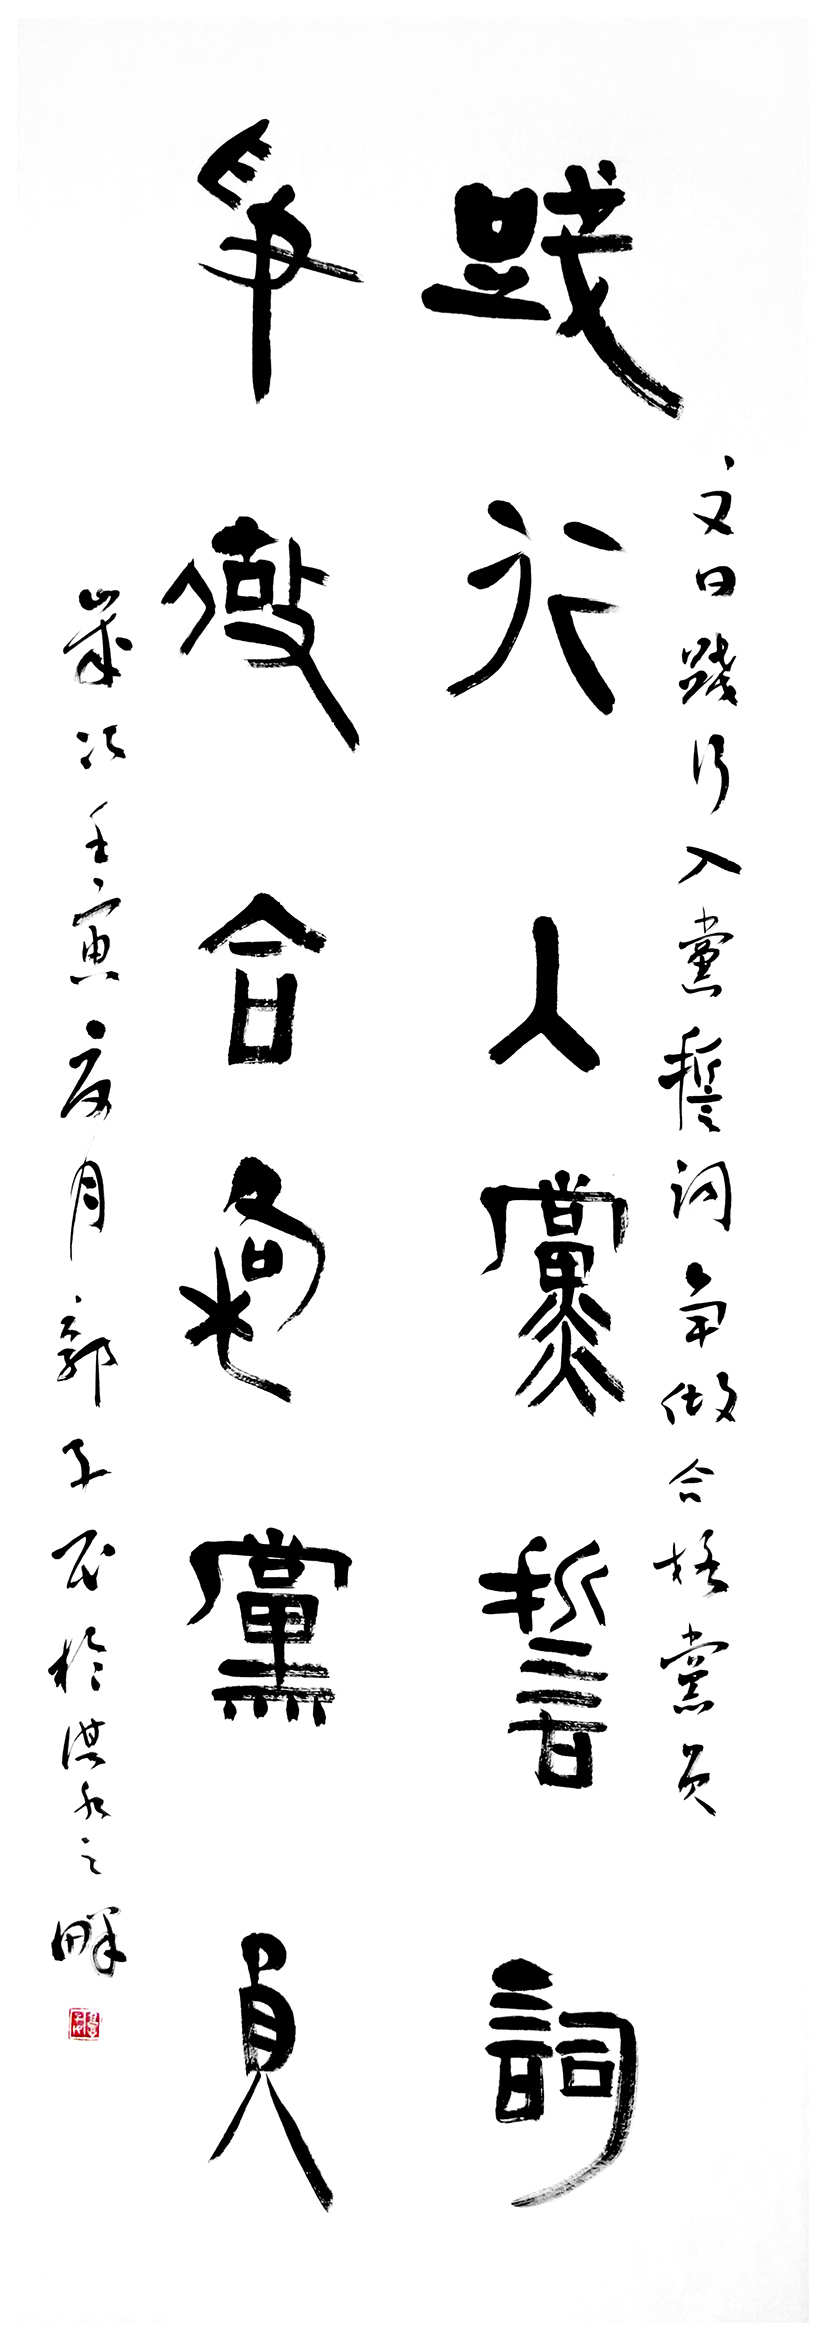 文曰踐行入黨誓詞爭做合格黨員
踐行入黨誓詞
爭做合格黨員
歲次壬寅夏月郭子民於淇水之畔